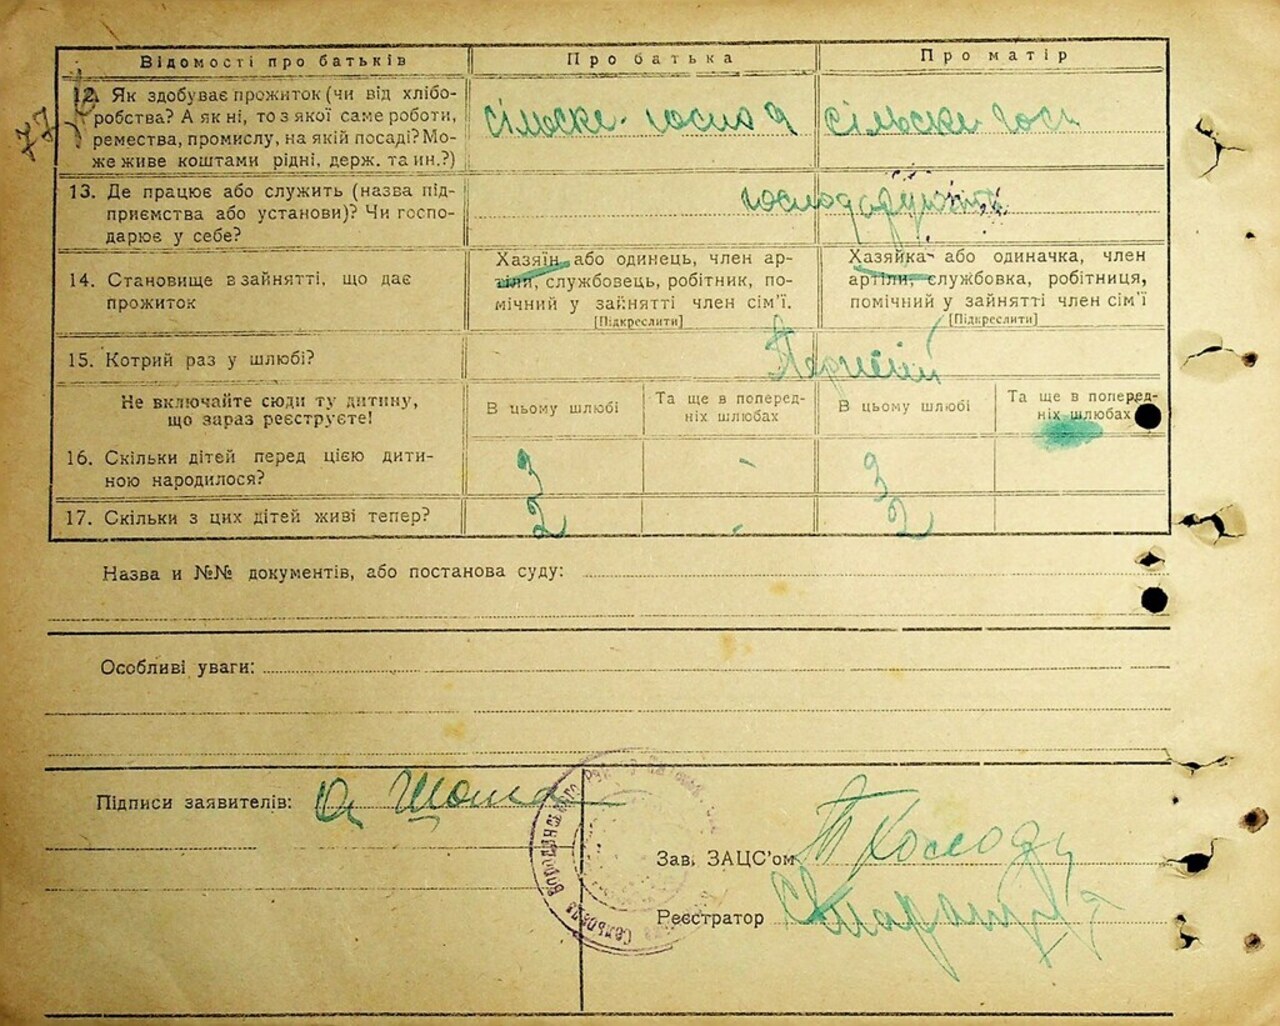 Відомості про батьків
Про батька
Про матір
77
12. Як здобуває прожиток (чи від хлібо-
робства? А як ні, то з якої саме роботи,
ремества, промислу, на якій посаді? Мо-
же живе коштами рідні, держ. та ин.?)
сільске господ
сільске госп
13. Де працює або служить (назва під-
приємства або установи)? Чи госпо-
дарює у себе?
господарують
14. Становище в зайнятті, що дає
прожиток
Хазяїн або одинець, член ар-
тіли, службовець, робітник, по-
мічний у зайнятті член сім'ї.
[Підкреслити]
Хазяйка або одиначка, член
артіли, службовка, робітниця,
помічний у зайнятті член сім'ї
[Підкреслити]
15. Котрий раз у шлюбі?
Перший
Не включайте сюди ту дитину,
що зараз реєструєте!
В цьому шлюбі
Та ще в поперед-
ніх шлюбах
В цьому шлюбі
Та ще в поперед-
ніх шлюбах
16. Скільки дітей перед цією дити-
ною народилося?
3
-
3
17. Скільки з цих дітей живі тепер?
2
-
2
Назва и №№ документів, або постанова суду:
Особливі уваги:
Підписи заявителів:
Зав. ЗАЦС'ом
Реєстратор